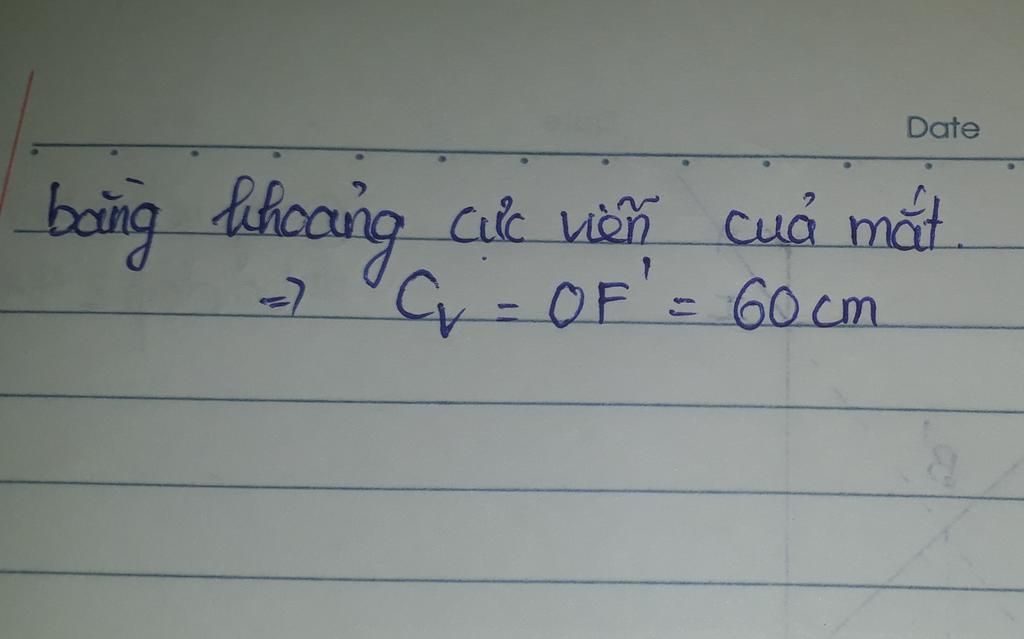 Date
bằng khoảng cực viễn của mắt.
=> Cv = OF' = 60 cm
B'